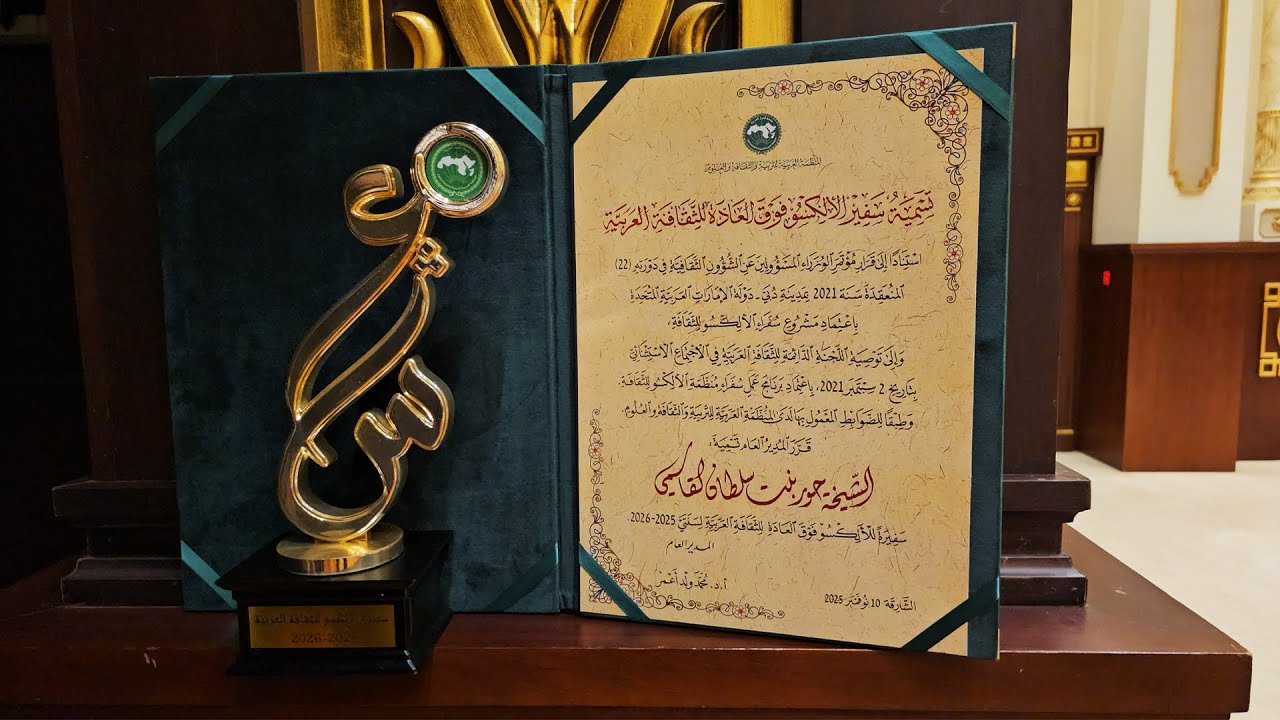 المنظمة العربية للتربية والثقافة والعلوم
تَسْمِيَةُ سَفِيْرِ الألكسُو فَوقَ العَادَة للثَّقَافَة العَرَبيَّة
اسْتِنَادًا إلَى قَرَار مُؤْتَمَر الوُزَرَاء المَسْؤُولِينَ عَنِ الشُّؤُون الثَّقَافِيَّة فِي دَوْرَتِهِ (22)
المُنْعَقِدَةُ سَنَة 2021 بِمَدِينَةِ دُبَيّ - دَوْلَة الإمَارَات العَرَبِيَّة المُتَّحِدَة
بِاعْتِمَادِ مَشْرُوع سُفَرَاء الألِكْسُو للثَّقَافَةِ،
وَإِلَى تَوْصِيَة اللَّجْنَةِ الدَّائِمَة للثَّقَافَة العَرَبِيَّةِ فِي الاجْتِمَاعِ الاسْتِثْنَائِيّ
بِتَارِيخ 2 سِبْتَمْبَر 2021، بِاعْتِمَادِ بَرنَامَج عَمَل سُفَرَاء مُنَظَّمَة الألِكْسُو للثَّقَافَةِ.
وَطِبْقًا للضَّوابِطِ المَعْمُولِ بِهَا لَدَى المُنَظَّمَة العَرَبِيَّة للتَّرْبِيَة وَالثَّقَافَة وَالعُلُوم،
قَرَّرَ المُدِيرُ العَام تَسْمِيَة،
الشَّيخَة حور بنت سلطان القاسمي
سَفِيرَةً للألِكْسُو فَوْقَ العَادَةِ للثَّقَافَةِ العَرَبِيَّةِ لِسَنَتَيْ 2025-2026.
المدير العام
أ.د. مُحَمَّد وِلْد أَعْمَر
الشَّارقَة 10 نُوفَمْبَر 2025
للثقافة العربية